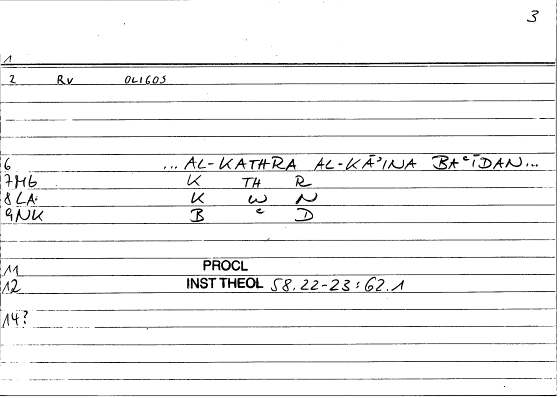 3
1
2 RV OLIGOS
6 ... AL-KATHRA AL-KĀʾINA BAʿĪDAN...
7 Mb K TH R
8 LA: K W N
9 NK B ʿ D
11 PROCL
12 INST THEOL 58.22-23:62.1
14?